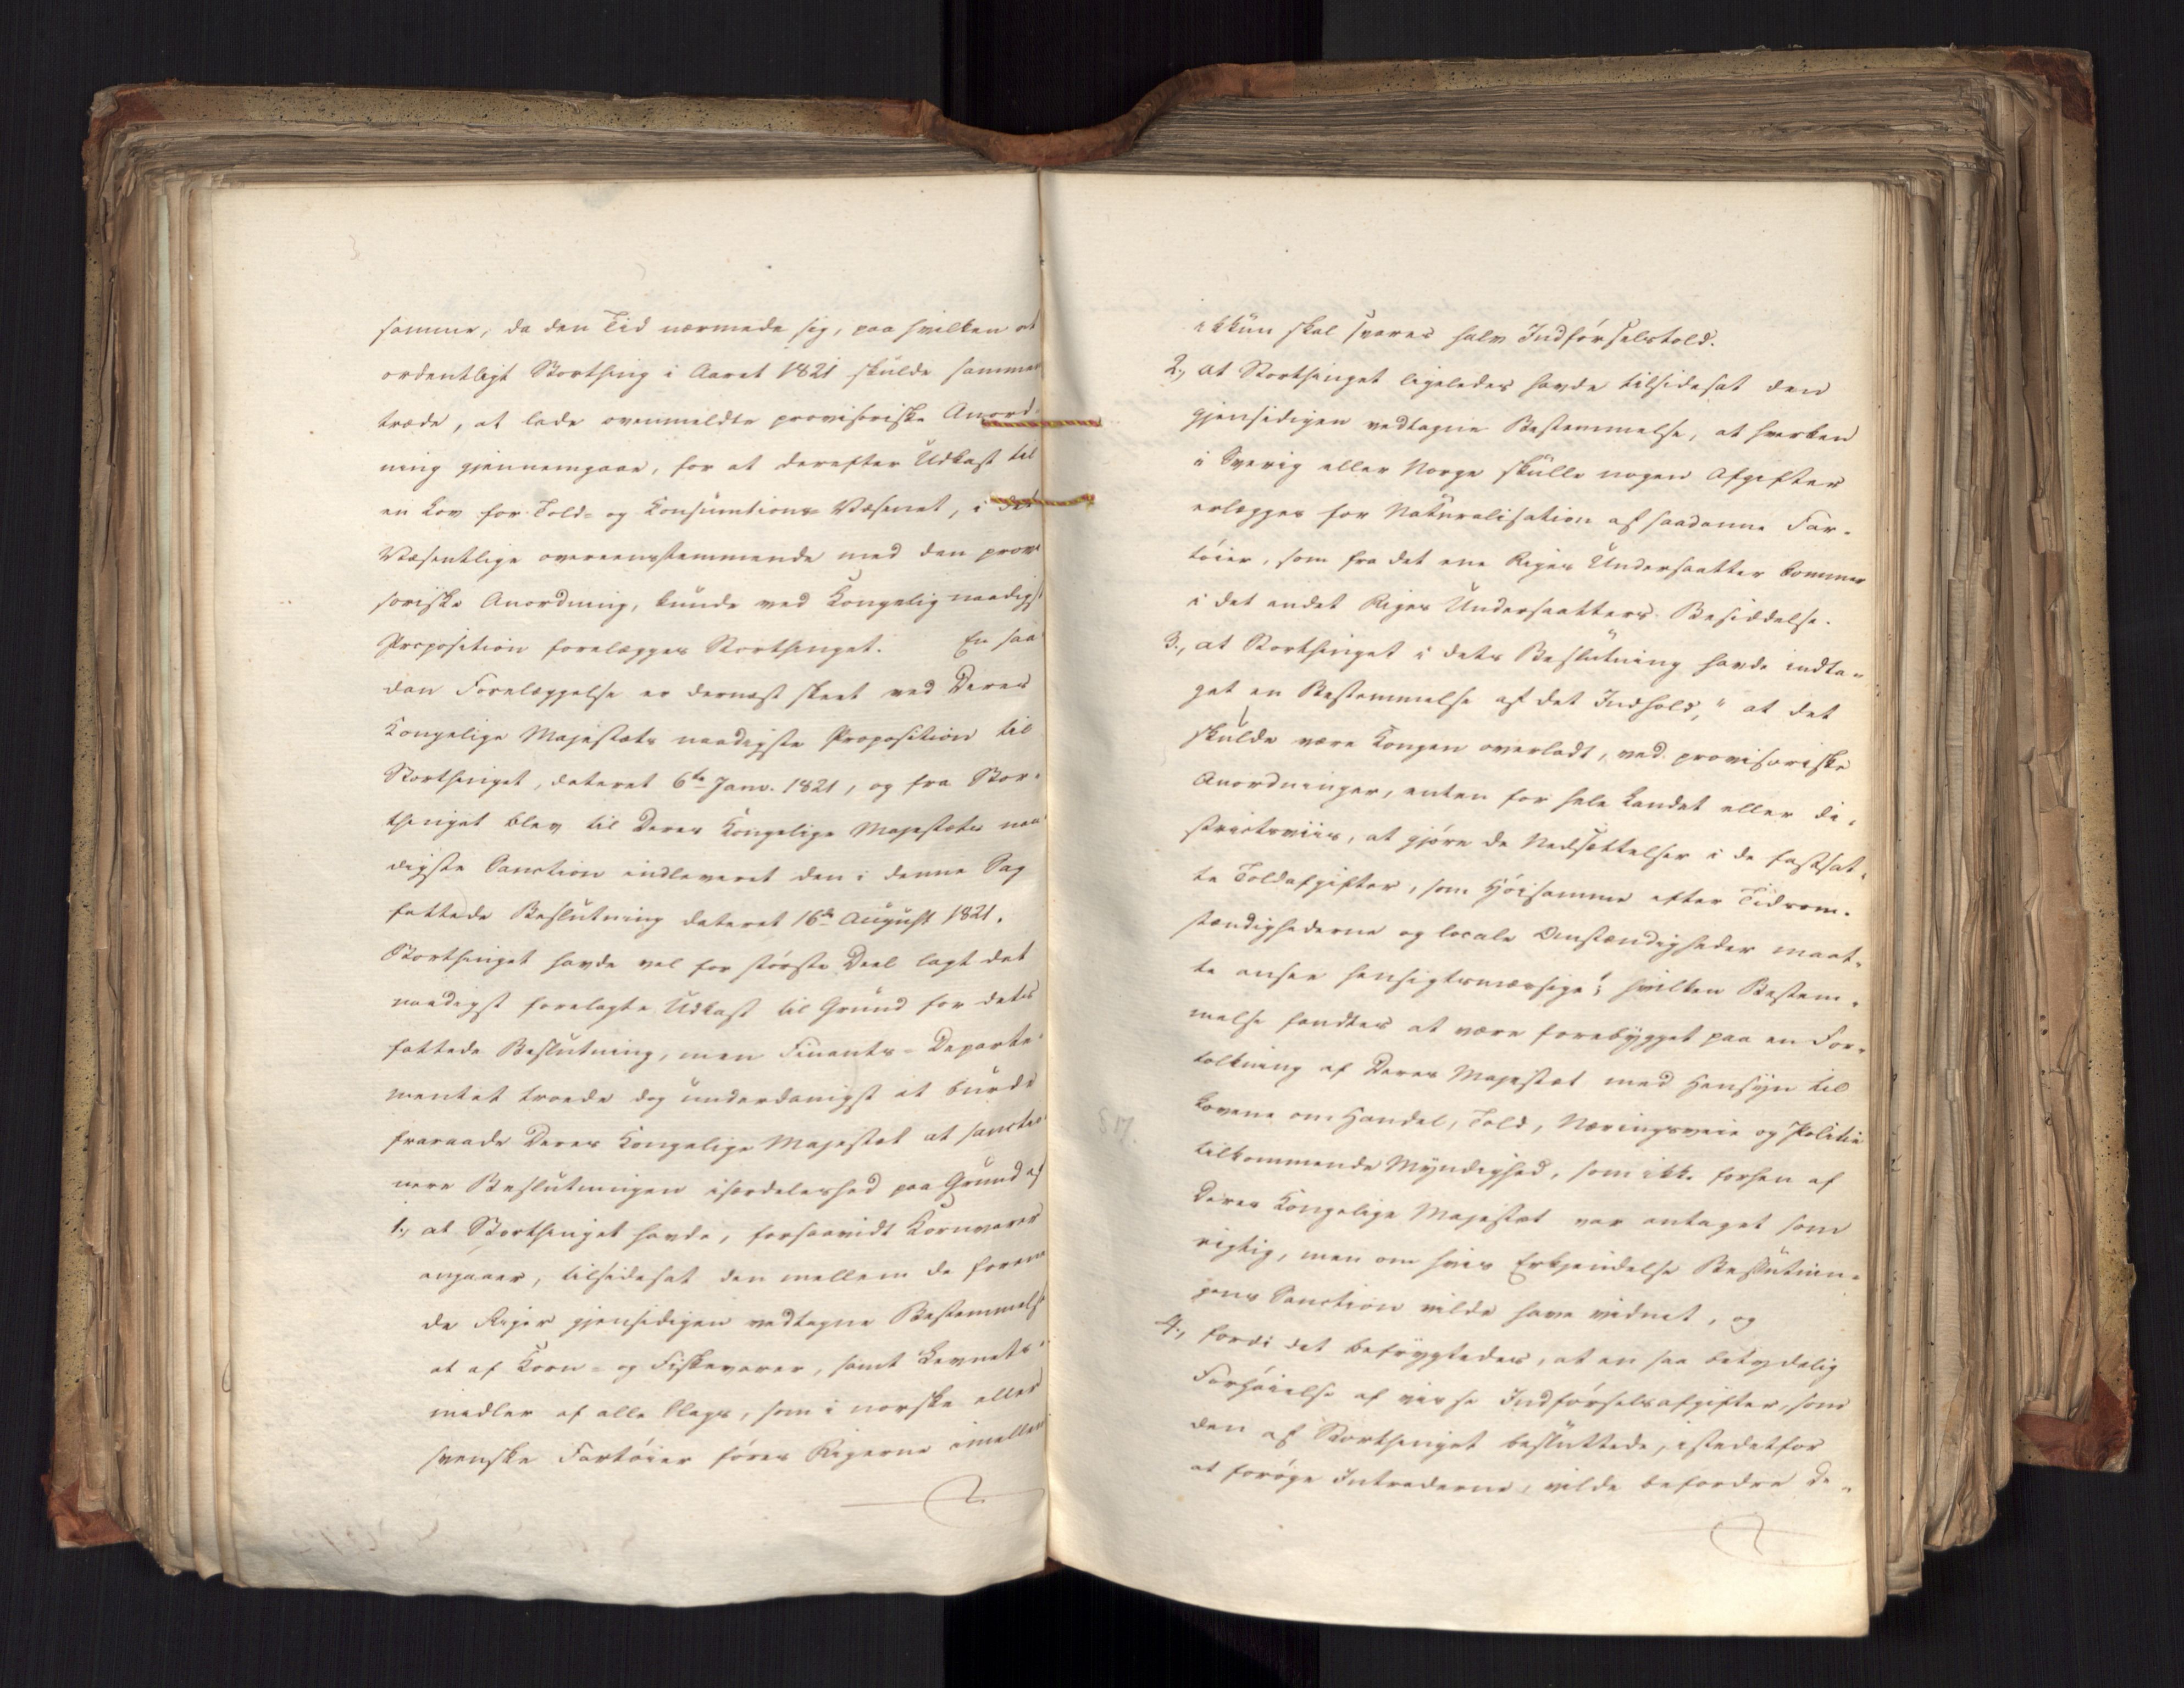 samme, da den Tid nærmede sig, paa hvilken et
ordentligt Storthing i Aaret 1821 skulde sammen
træde, at lade ovenmeldte provisoriske Anord-
ning gjennemgaae, for at derefter Udkast til
en Lov for Told- og Consumtions-Væsenet, i det
Væsentlige overeensstemmende med den provi
soriske Anordning, kunde ved Kongelig naadigst
Proposition forelægges Storthinget. En saa
dan Forelæggelse er dernæst skeet ved Deres
Kongelige Majestæts naadigste Proposition til
Storthinget, dateret 6te Janv. 1821, og fra Stor-
thinget blev til Deres Kongelige Majestæts naa
digste Sanction indleveret den i denne Sag
fattede Beslutning dateret 16de August 1821.
Storthinget havde vel for største Deel lagt det
naadigst forelagte Udkast til Grund for dets
fattede Beslutning, men Finants-Departe-
mentet troede dog underdanigst at burde
fraraade Deres Kongelige Majestæt at sanctio-
nere Beslutningen isærdeleshed paa Grund af
1., at Storthinget havde, forsaavidt Kornvarer
angaaer, tilsidesat den mellem de foren
de Riger gjensidigen vedtagne Bestemmelse
at af Korn- og Fiskevarer, samt Levnets-
midler af alle Slags, som i norske eller
svenske Fartøier føres Rigerne imellem
ikkun skal svares halv Indførselstold.
2., at Storthinget ligeledes havde tilsidesat den
gjensidigen vedtagne Bestemmelse, at hverken
i Sverig eller Norge skulle nogen Afgifter
erlægges for Naturalisation af saadanne Far-
tøier, som fra det ene Riges Undersaatter kommer
i det andet Riges Undersaatters Besiddelse.
3., at Storthinget i dets Beslutning havde indta-
get en Bestemmelse af det Indhold, "at det
skulde være Kongen overladt, ved provisoriske
Anordninger, enten for hele Landet eller di-
strictsviis, at gjøre de Nedsættelser i de fastsat-
te Toldafgifter, som Høisamme efter Tidsom-
stændighederne og locale Omstændigheder maat-
te ansee hensigtsmæssige"; hvilken Bestem-
melse fandtes at være forebygget paa en For-
tolkning af Deres Majestæt med Hensyn til
Lovene om Handel, Told, Næringsveie og Politie
§ 17.
tilkommende Myndighed, som ikke forhen af
Deres Kongelige Majestæt var antaget som
rigtig, men om hvis Erkjendelse Beslutnin-
gens Sanction vilde have vidnet, og
4., fordi det befrygtedes, at en saa betydelig
Forhøielse af visse Indførselsafgifter, som
den af Storthinget besluttede, istedetfor
at forøge Intraderne, vilde befordre De-